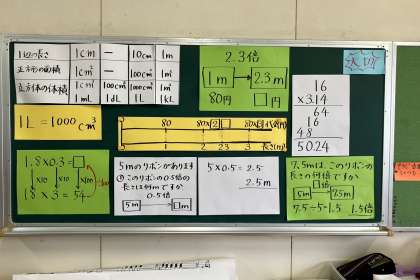 1辺の長さ 1cm — 10cm 1m
正方形の面積 1cm² — 100cm² 1m²
立方体の体積 1cm³ 100cm³ 1000cm³ 1m³
1mL 1dL 1L 1kL
2.3倍
1m → 2.3m
80円 □円
1L = 1000cm³
80 80×2 80×
1 2 2.3 3 長さ(m)
16
×3.14
64
16
48
50.24
1.8×0.3=□
×10 ×10 ×100
18×3=54
5mのリボンがあります
このリボンの0.5倍の
長さは何mですか
0.5倍
5m → □m
5×0.5=2.5
2.5m
7.5mは、このリボンの
長さの何倍ですか
□倍
5m → 7.5m
7.5÷5=1.5 1.5倍